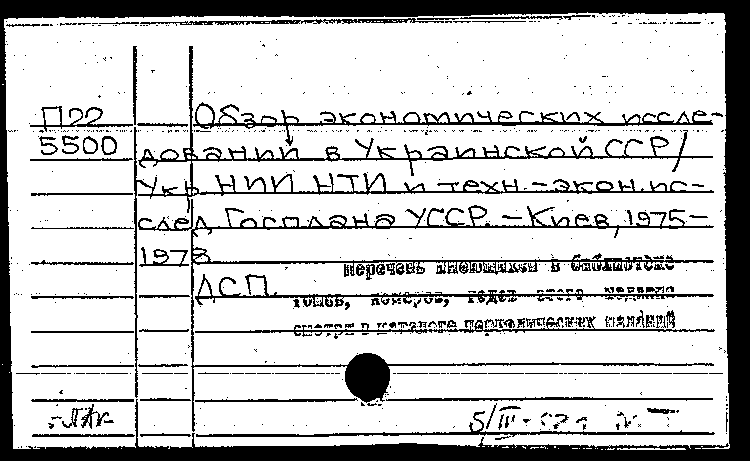 П22 Обзор экономических иссле-
5500 дований в Украинской ССР/
Укр НИИ НТИ и техн.-экон. ис-
след Госплана УССР. – Киев, 1975-
1978
перечень имеющихся в библиотеке
ДСП.
томов, номеров, годов этого издания
смотри в каталоге периодических изданий
5/III-